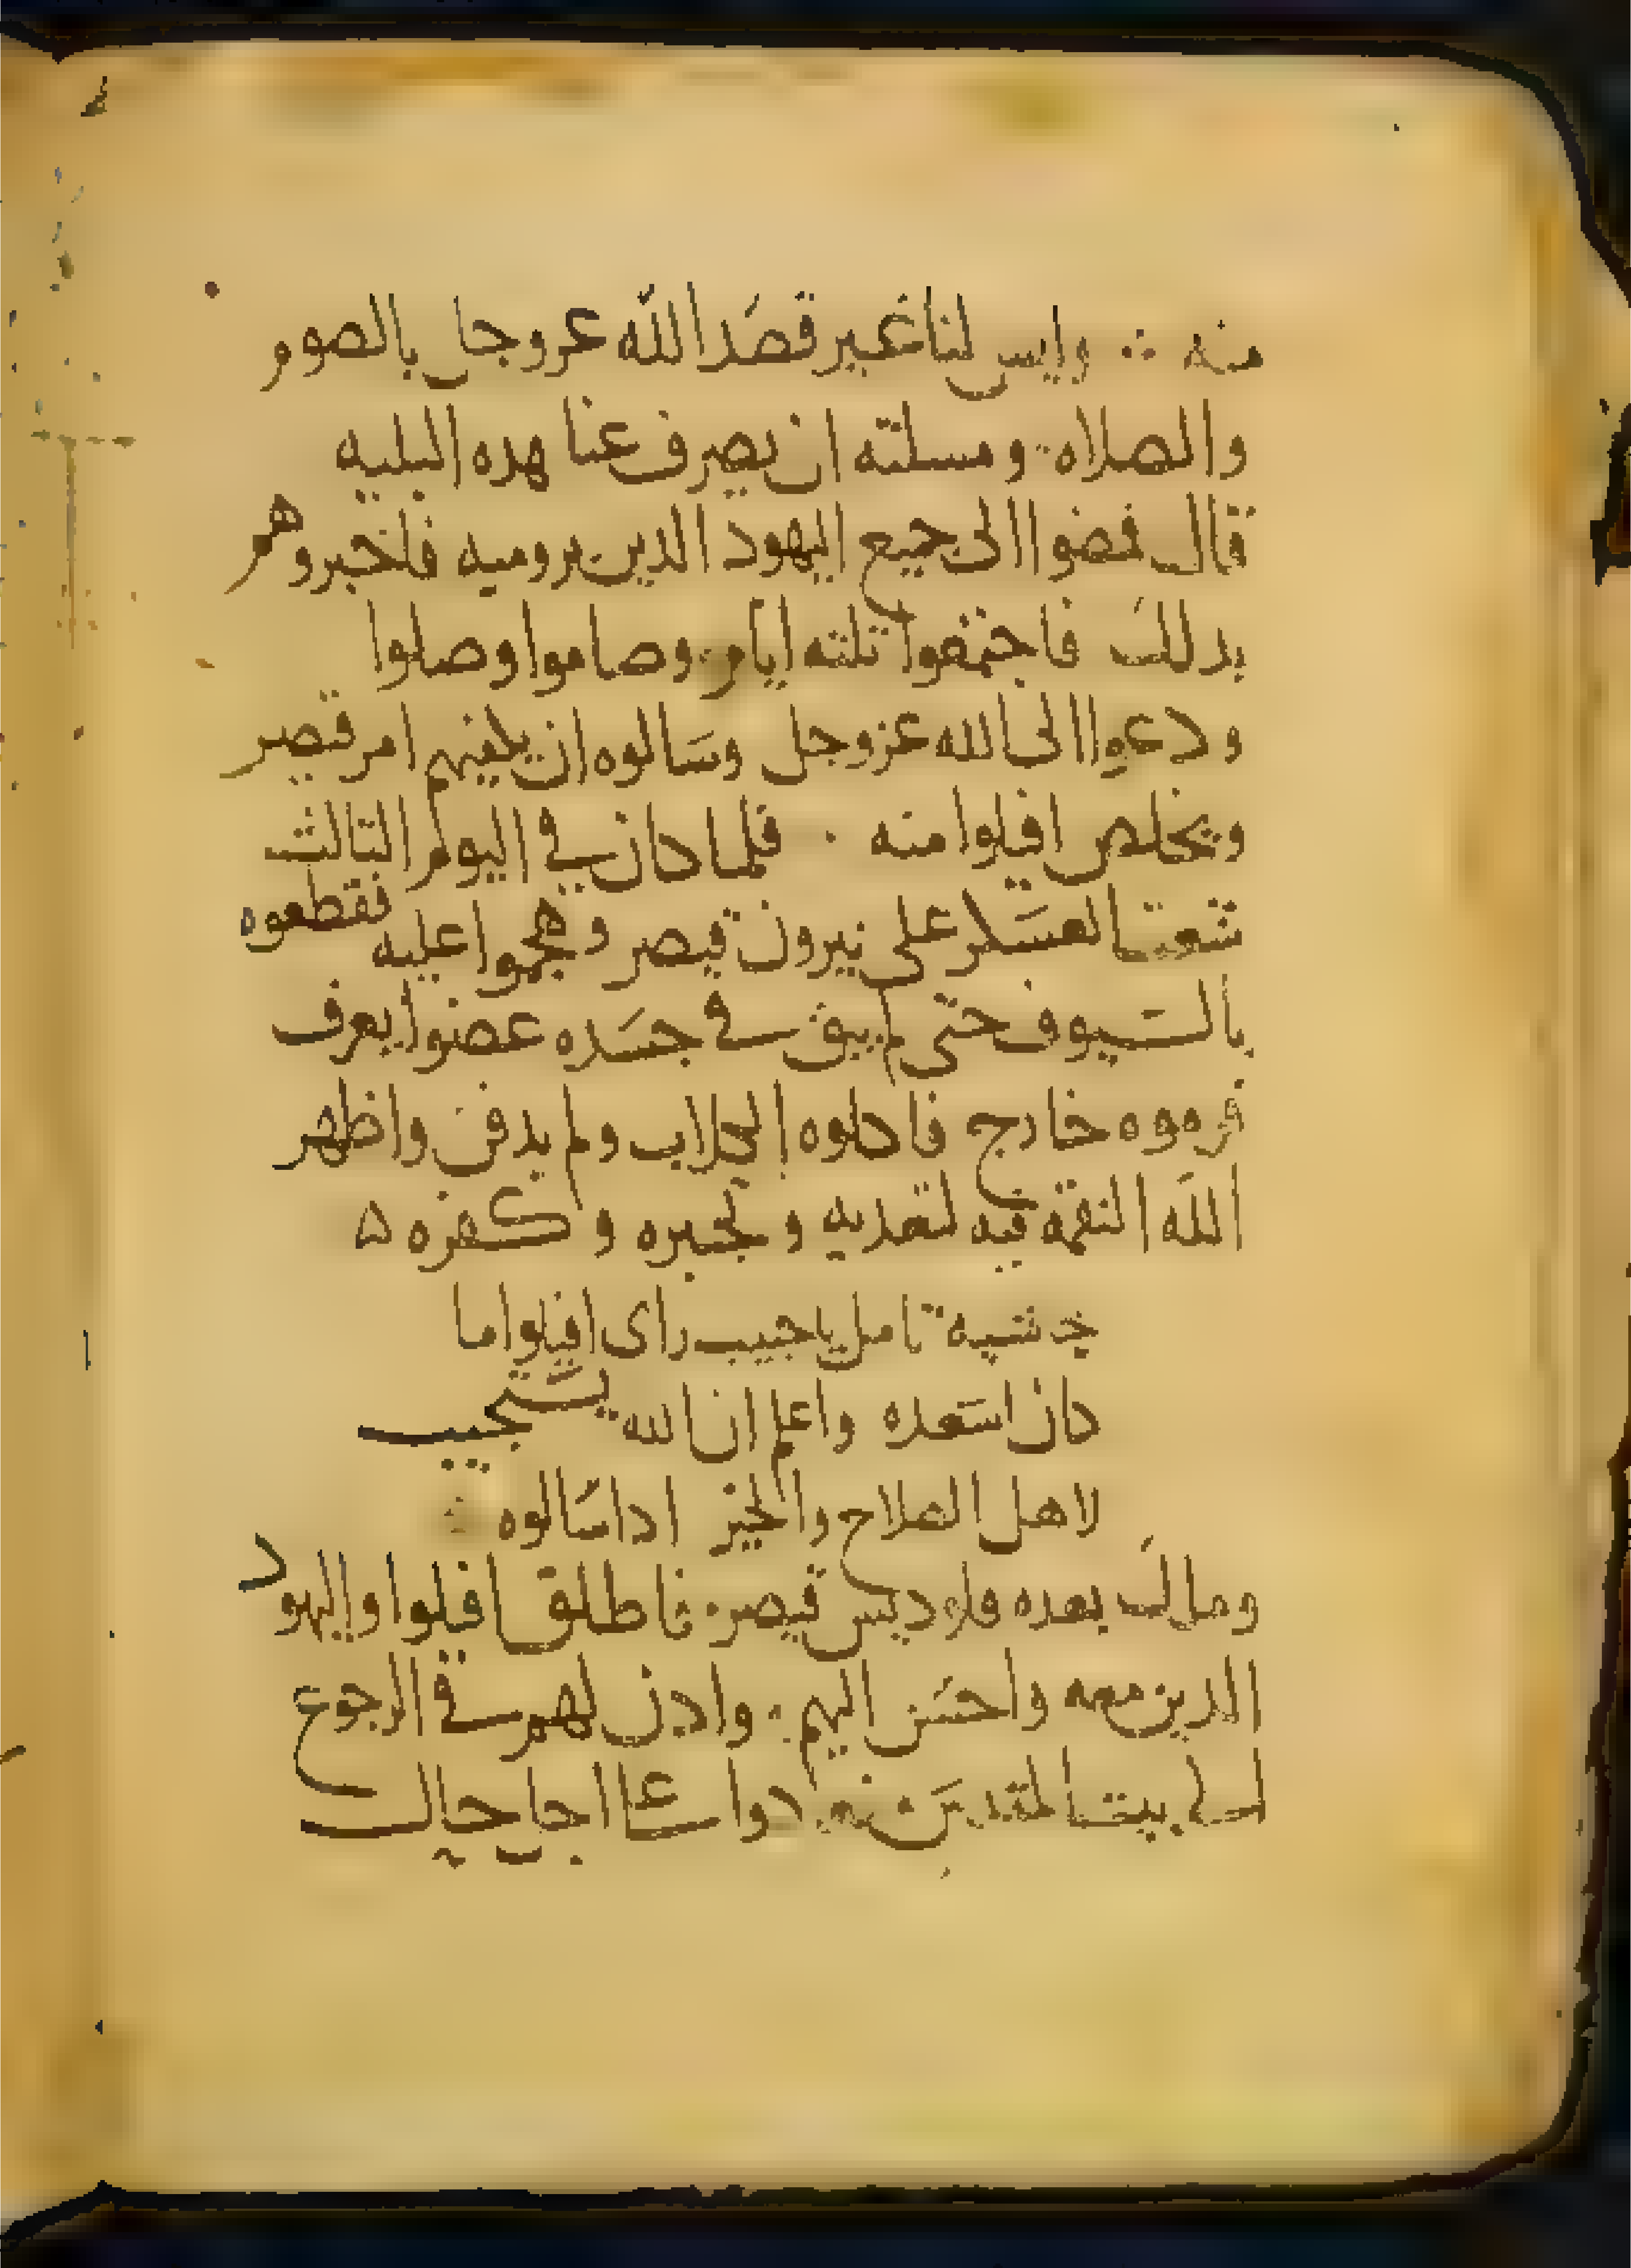 منه ∴ وليس لنا غير قصد الله عز وجل بالصوم
والصلاه ومسلته ان يصرف عنا هده البليه
قال فمضوا الى جميع اليهود الدين بروميه فاخبروهم
بدلك فاجتمعوا تلته ايام وصاموا وصلوا
ودعوا الى الله عز وجل وسالوه ان يكفيهم امر قيصر
ويخلص افيلوا منه · فلما كان في اليوم التالث
شعت العسكر على نيرون قيصر وهجموا عليه فقطعوه
بالسيوف حتى لم يبق في جسده عضوا يعرف
فرموه خارج فاكلوه الكلاب ولم يدفن واظهر
الله النقمة فيه لتعديه وتجبره وكفره ه
تامل يا حبيب راى افيلوا ما
كان اسعده واعلم ان الله يستجيب
لاهل الصلاح والخير ادا سالوه
وملك بعده قلوديس قيصر فاطلق افيلوا واليهود
الدين معه واحسن اليهم واذن لهم في الرجوع
الى بيت المقدس